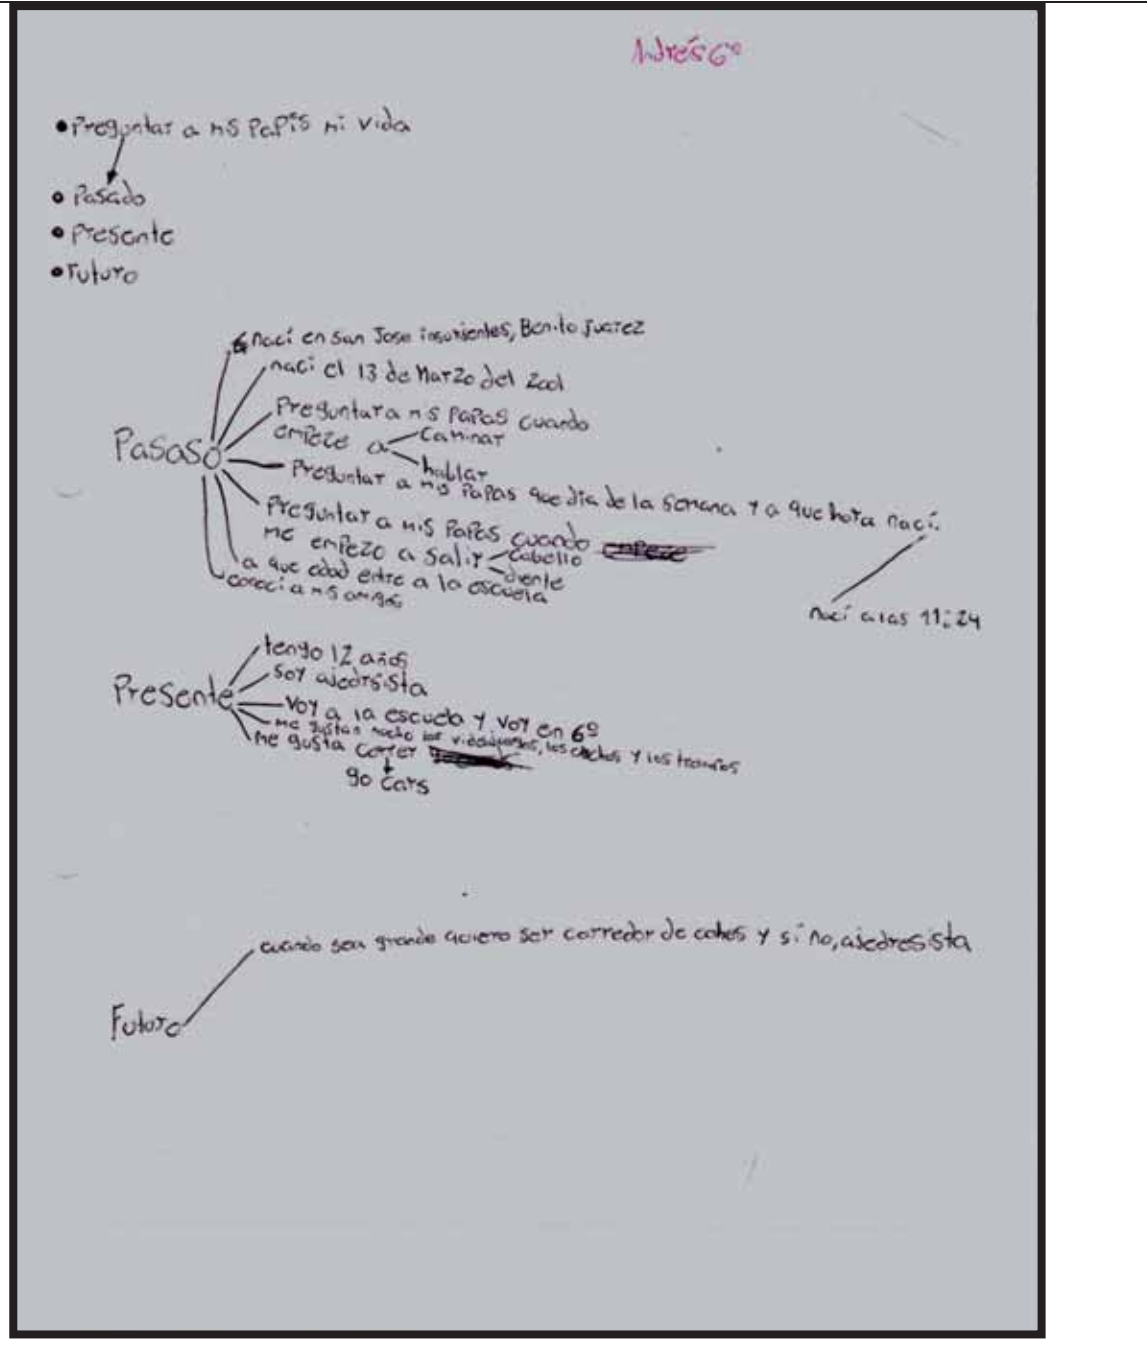 Andrés 6º
• Preguntar a mis papis mi vida
• Pasado
• Presente
• Futuro
nací en San Jose insurientes, Benito Juarez
naci el 13 de Marzo del 2001
Preguntar a mis papas cuando
empeze a caminar
hablar
Pasaso
Preguntar a mis papas que dia de la semana y a que hora nací.
Preguntar a mis papas cuando
me empezo a salir cabello
diente
a que edad entre a la escuela
conoci a mis amigos
nací a las 11:24
tengo 12 años
soy ajedrsista
Presente
voy a la escuela y voy en 6º
me gustan mucho los videojuegos, los coches y los
me gusta correr
go cars
cuando sea grande quiero ser corredor de cohes y si no, ajedresista
Futuro